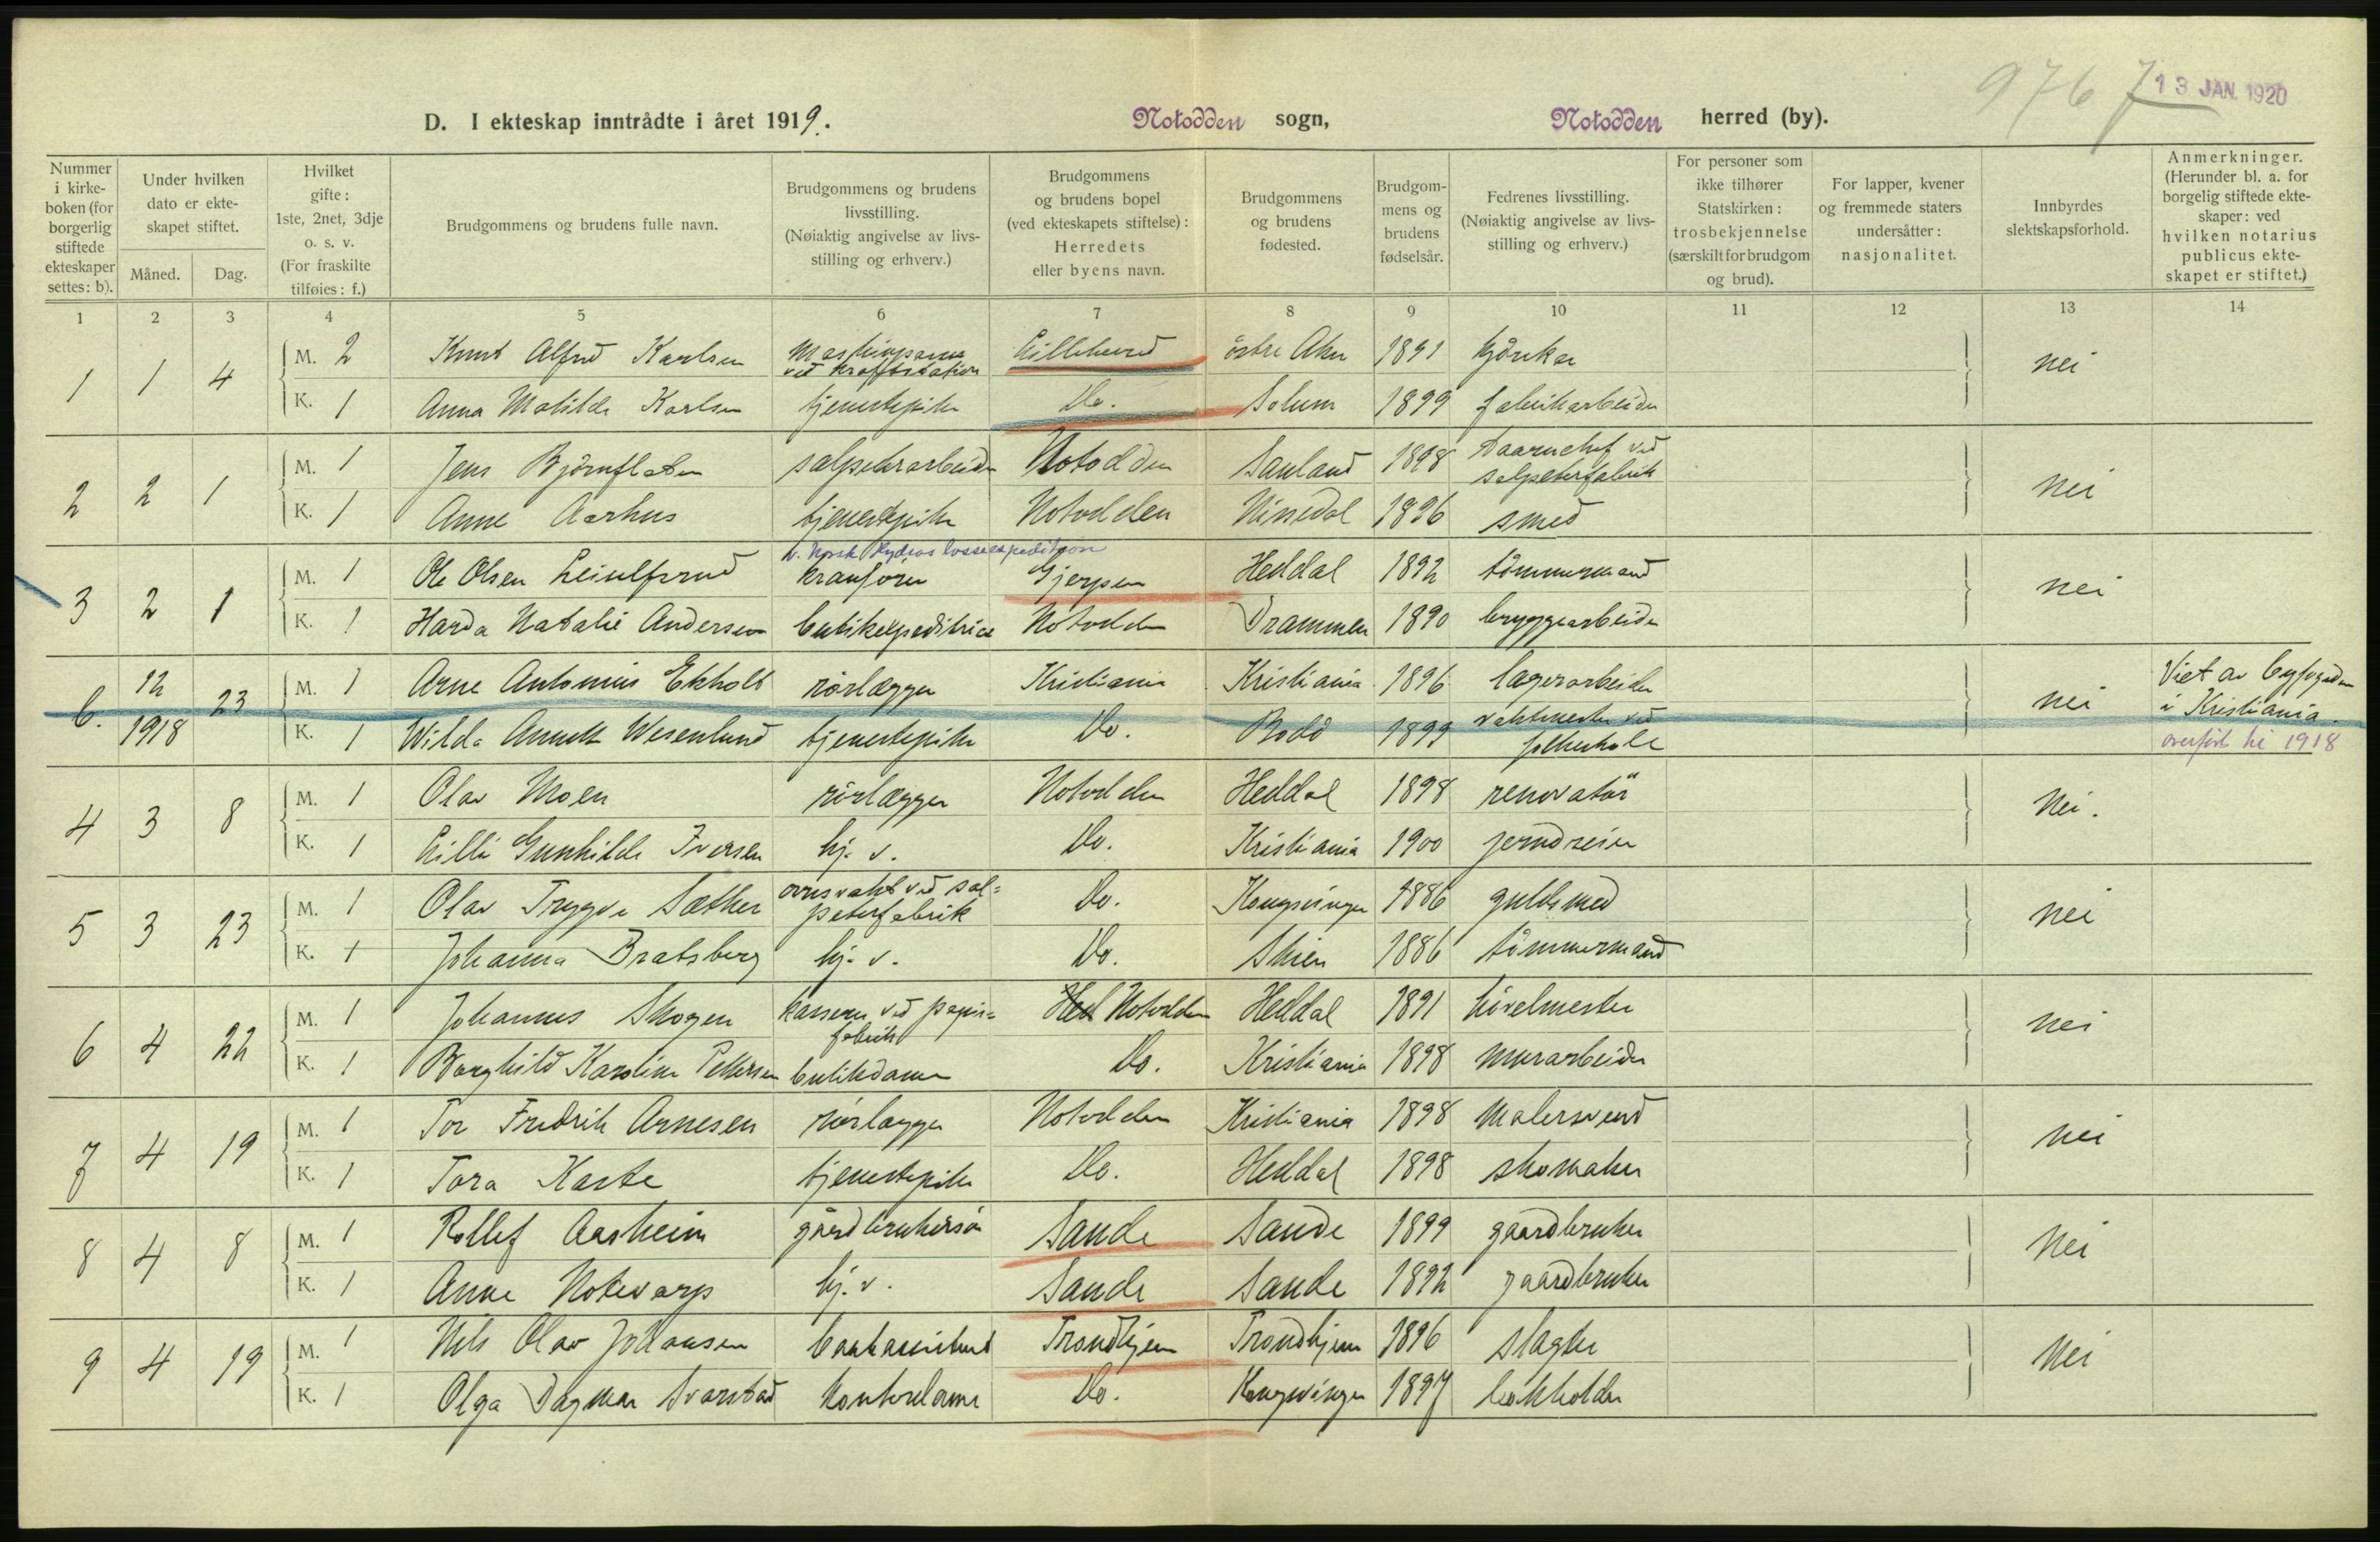 976 7
13 JAN. 1920
D. I ekteskap inntrådte i året 1919. Notodden sogn, Notodden herred (by).
Nummer i kirke-boken (for borgerlig stiftede ekteskaper settes: b).
Under hvilken dato er ekte-skapet stiftet.
Måned. Dag.
Hvilket gifte: 1ste, 2net, 3dje o. s. v. (For fraskilte tilføies: f.)
Brudgommens og brudens fulle navn.
Brudgommens og brudens livsstilling. (Nøiaktig angivelse av livs-stilling og erhverv.)
Brudgommens og brudens bopel (ved ekteskapets stiftelse): Herredets eller byens navn.
Brudgommens og brudens fødested.
Brudgom-mens og brudens fødselsår.
Fedrenes livsstilling. (Nøiaktig angivelse av livs-stilling og erhverv.)
For personer som ikke tilhører Statskirken: trosbekjennelse (særskilt for brudgom og brud).
For lapper, kvener og fremmede staters undersåtter: nasjonalitet.
Innbyrdes slektskapsforhold.
Anmerkninger. (Herunder bl. a. for borgelig stiftede ekte-skaper: ved hvilken notarius publicus ekte-skapet er stiftet.)
1 2 3 4 5 6 7 8 9 10 11 12 13 14
1 1 4 M. 2 Knut Alfred Karlsen Maskinpasser ved kraftstation Lilleherred östre Aker 1891 kjörekar nei
K. 1 Anna Matilde Karlsen tjenestepike Do. Solum 1899 fabrikarbeider
2 2 1 M. 1 Jens Björnflaten salpeterarbeider Notodden Sauland 1898 taarnchef ved salpeterfabrik nei
K. 1 Anne Aarhus tjenestepike Notodden Nissedal 1896 smed
3 2 1 M. 1 Ole Olsen Leiulfsrud v. Norsk Hydros losseexpedition kranförer Gjerpen Heddal 1892 tömmermand nei
K. 1 Harda Natalie Andersen butikexpeditrice Notodden Drammen 1890 bryggearbeider
b. 12 1918 23 M. 1 Arne Antonius Ekholt rörlægger Kristiania Kristiania 1896 lagerarbeider nei Viet av byfogden i Kristiania.
K. 1 Wilda Annette Wesenlund tjenestepike Do. Bodö 1899 vaktmester ved folkeskole overfört til 1918
4 3 8 M. 1 Olav Moen rörlægger Notodden Heddal 1898 renovatör Nei.
K. 1 Lilli Gunhilde Iversen hj. v. Do. Kristiania 1900 jerndreier
5 3 23 M. 1 Olav Trygve Sæther ovnsvakt ved sal=peterfabrik Do. Kongsvinger 1886 guldsmed nei
K. 1 Johanna Bratsberg hj. v. Do. Skien 1886 tömmermand
6 4 22 M. 1 Johannes Skogen kasserer ved papir=fabrik Notodden Heddal 1891 hövelmester nei
K. 1 Borghild Karoline Pettersen butikdame Do. Kristiania 1898 murarbeider
7 4 19 M. 1 Tor Fredrik Arnesen rörlægger Notodden Kristiania 1898 Malersvend nei
K. 1 Tora Kaste tjenestepike Do. Heddal 1898 skomaker
8 4 8 M. 1 Rollef Aasheim gårdbrukersön Sande Sande 1899 gaardbruker nei
K. 1 Anne Notevarp hj. v. Sande Sande 1892 gaardbruker
9 4 19 M. 1 Nils Olav Johansen bankassistent Trondhjem Trondhjem 1896 slagter nei
K. 1 Olga Dagmar Svarstad Kontordame Do. Kongsvinger 1897 bokholder